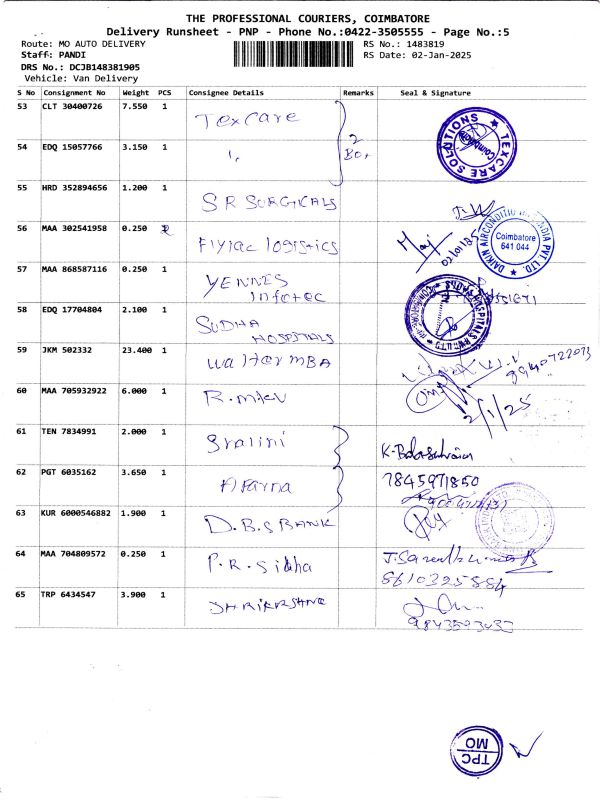 THE PROFESSIONAL COURIERS, COIMBATORE
Delivery Runsheet - PNP - Phone No.:0422-3505555 - Page No.:5
Route: MO AUTO DELIVERY
RS No.: 1483819
Staff: PANDI
RS Date: 02-Jan-2025
DRS No.: DCJB148381905
Vehicle: Van Delivery
S No Consignment No Weight PCS Consignee Details Remarks Seal & Signature
53 CLT 30400726 7.550 1 Texcare
2 Box
TEXCARE SOLUTIONS Coimbatore
54 EDQ 15057766 3.150 1
55 HRD 352894656 1.200 1 SR SURGICALS
56 MAA 302541958 0.250 Flyjac logistics
02/01/25
DAIKIN AIRCONDITIONING INDIA PVT. LTD.
Coimbatore
641 044
57 MAA 868587116 0.250 1 YENNES
Infotec
58 EDQ 17704804 2.100 1 SUDHA
HOSPITALS
59 JKM 502332 23.400 1 Walter MBA
60 MAA 705932922 6.000 1
2/1/25
61 TEN 7834991 2.000 1
62 PGT 6035162 3.650 1
7845971850
63 KUR 6000546882 1.900 1 D.B.S BANK
64 MAA 704809572 0.250 1 P.R.
8610325884
65 TRP 6434547 3.900 1
TPC
MO